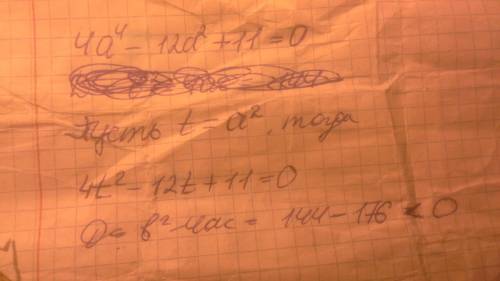 4a⁴ - 12a² + 11 = 0
Пусть t = a², тогда
4t² - 12t + 11 = 0
D = b² - 4ac = 144 - 176 < 0